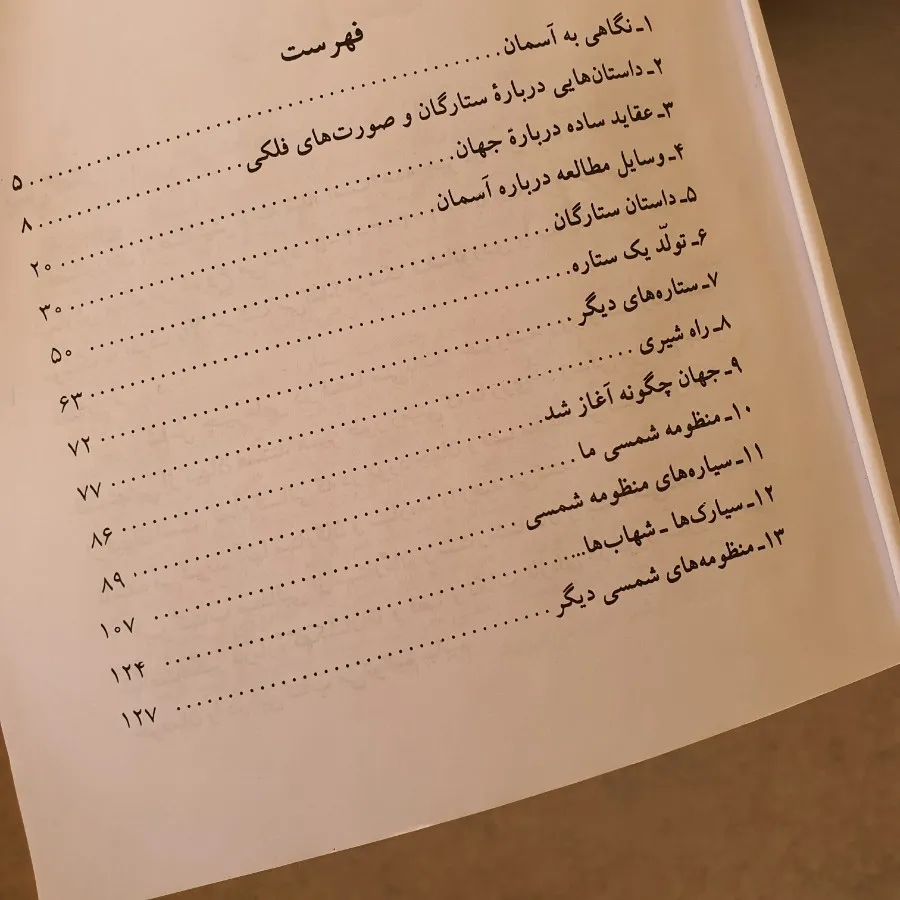 فهرست
۱ـ نگاهی به آسمان ........................................ ۵
۲ـ داستان‌هایی دربارهٔ ستارگان و صورت‌های فلکی .................... ۸
۳ـ عقاید ساده دربارهٔ جهان ........................................ ۲۰
۴ـ وسایل مطالعه درباره آسمان ........................................ ۳۰
۵ـ داستان ستارگان ........................................ ۵۰
۶ـ تولّد یک ستاره ........................................ ۶۳
۷ـ ستاره‌های دیگر ........................................ ۷۲
۸ـ راه شیری ........................................ ۷۷
۹ـ جهان چگونه آغاز شد ........................................ ۸۶
۱۰ـ منظومه شمسی ما ........................................ ۸۹
۱۱ـ سیاره‌های منظومه شمسی ........................................ ۱۰۷
۱۲ـ سیارک‌ها ـ شهاب‌ها ........................................ ۱۲۴
۱۳ـ منظومه‌های شمسی دیگر ........................................ ۱۲۷